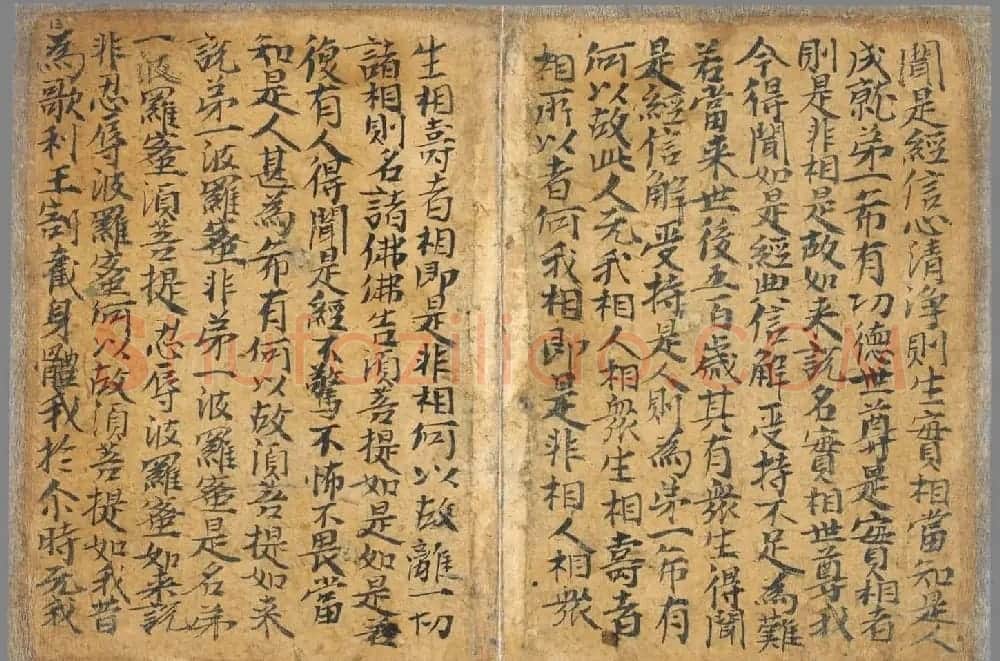 聞是經信心清淨則生實相當知是人
成就弟一希有功德世尊是實相者
則是非相是故如来說名實相世尊我
今得聞如是經典信解受持不足為難
若當来世後五百歲其有衆生得聞
是經信解受持是人則為弟一希有
何以故此人无我相人相衆生相壽者
相所以者何我相即是非相人相衆
生相壽者相即是非相何以故離一切
諸相則名諸佛佛告湏菩提如是如是若
復有人得聞是經不驚不怖不畏當
知是人甚為希有何以故湏菩提如来
說弟一波羅蜜非弟一波羅蜜是名弟
一波羅蜜湏菩提忍辱波羅蜜如来說
非忍辱波羅蜜何以故湏菩提如我昔
為歌利王割截身體我於尒時无我
Shufaziliao.COM